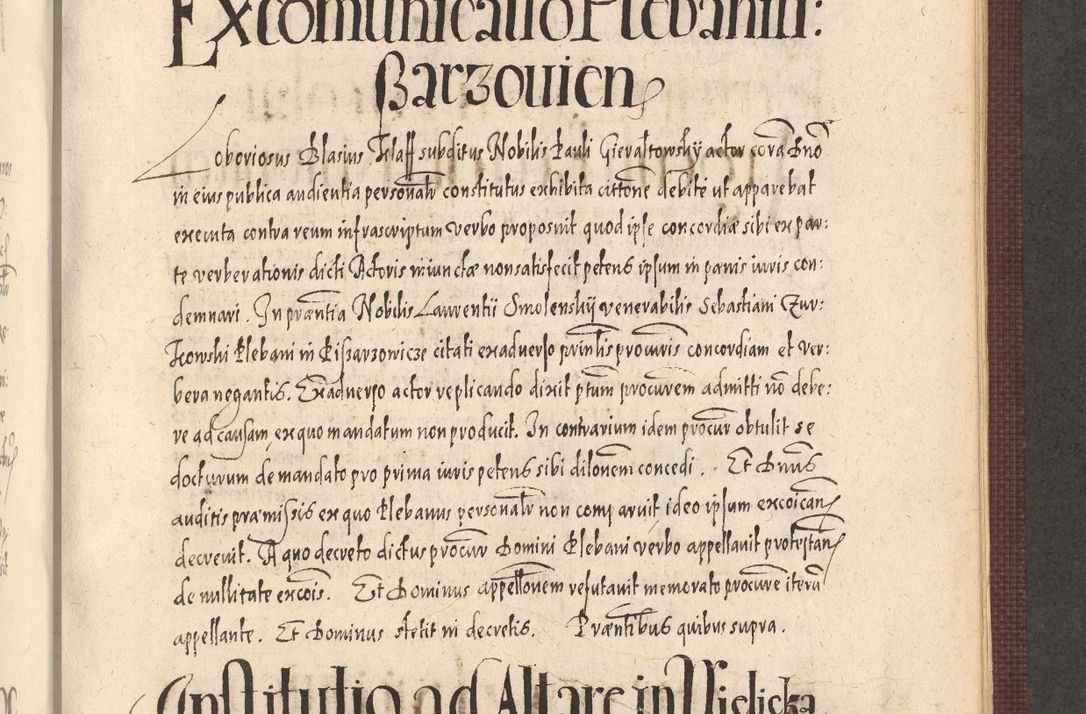 Excomunicatio Plebani in:
Barzouicen
Loboriosus Blasius Klaff subditus Nobilis Pauli Gieraltowsky actor corā Dnō
in eius publica audientia personalr constitutus exhibita cittōne debite ut apparebat
executa contra reum infrascriptum verbo proposuit quod ipse concordiæ sibi ex par:
te verberationis dicti Actoris iniunctæ non satisfecit petens ipsum in pænis iuris con:
demnari. In præntia Nobilis Laurentii Smolenskÿ venerabilis Sebastiani Zur:
kowski Plebani in Pisarzowicze citati ex aduerso prinlis procuris concordiam et ver:
bera negantis. Ex aduerso actor replicando dixit ptum procurem admitti nō debe:
re ad causam, ex quo mandatum non producit. In contrarium idem procur obtulit se
docturum de mandato pro prima iuris petens sibi dilonem concedi. Et Dnus
auditis præmissis ex quo Plebanus personalr non comparuit ideo ipsum excoican
decreuit. A quo decreto dictus procur Domini Plebani verbo appellauit protestan
de nullitate excois. Et Dominus appellonem refutauit memorato procure iterū
appellante. Et Dominus stetit in decretis. Præntibus quibus supra.
Institutio ad Altare in Vielicka